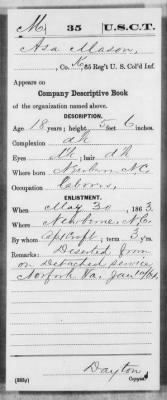 M | 35 | U.S.C.T.
Asa Mason,
Co. K, 35 Reg't U. S. Col'd Inf.
Appears on
Company Descriptive Book
of the organization named above.
DESCRIPTION.
Age 18 years; height 5 feet 6 inches.
Complexion dk
Eyes dk; hair dk
Where born Newbern N.C.
Occupation Laborer,
ENLISTMENT.
When May 30, 1863.
Where Newberne, N.C.
By whom Capt Croft; term 3 y'rs.
Remarks: Deserted from
on Detached service
Norfolk Va. Jan 10/64.
Dayton
Copyist.